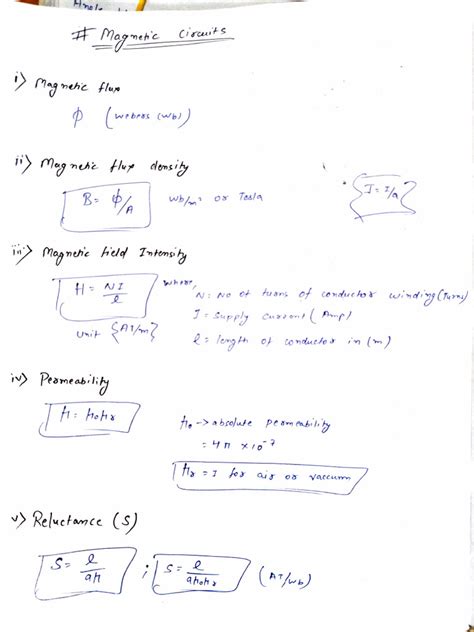 # Magnetic Circuits
i) Magnetic flux
ϕ (webers (wb))
ii) Magnetic flux density
B = ϕ/A wb/m² or Tesla
J = I/a
iii) Magnetic field Intensity
H = NI/l where,
N = No of turns of conductor winding (Turns)
I = Supply current (Amp)
l = length of conductor in (m)
unit {AT/m}
iv) Permeability
μ = μ₀μr
μ₀ → absolute permeability
= 4π × 10⁻⁷
μr = 1 for air or vaccum
v) Reluctance (S)
S = l/aμ ; S = l/aμ₀μr (AT/wb)